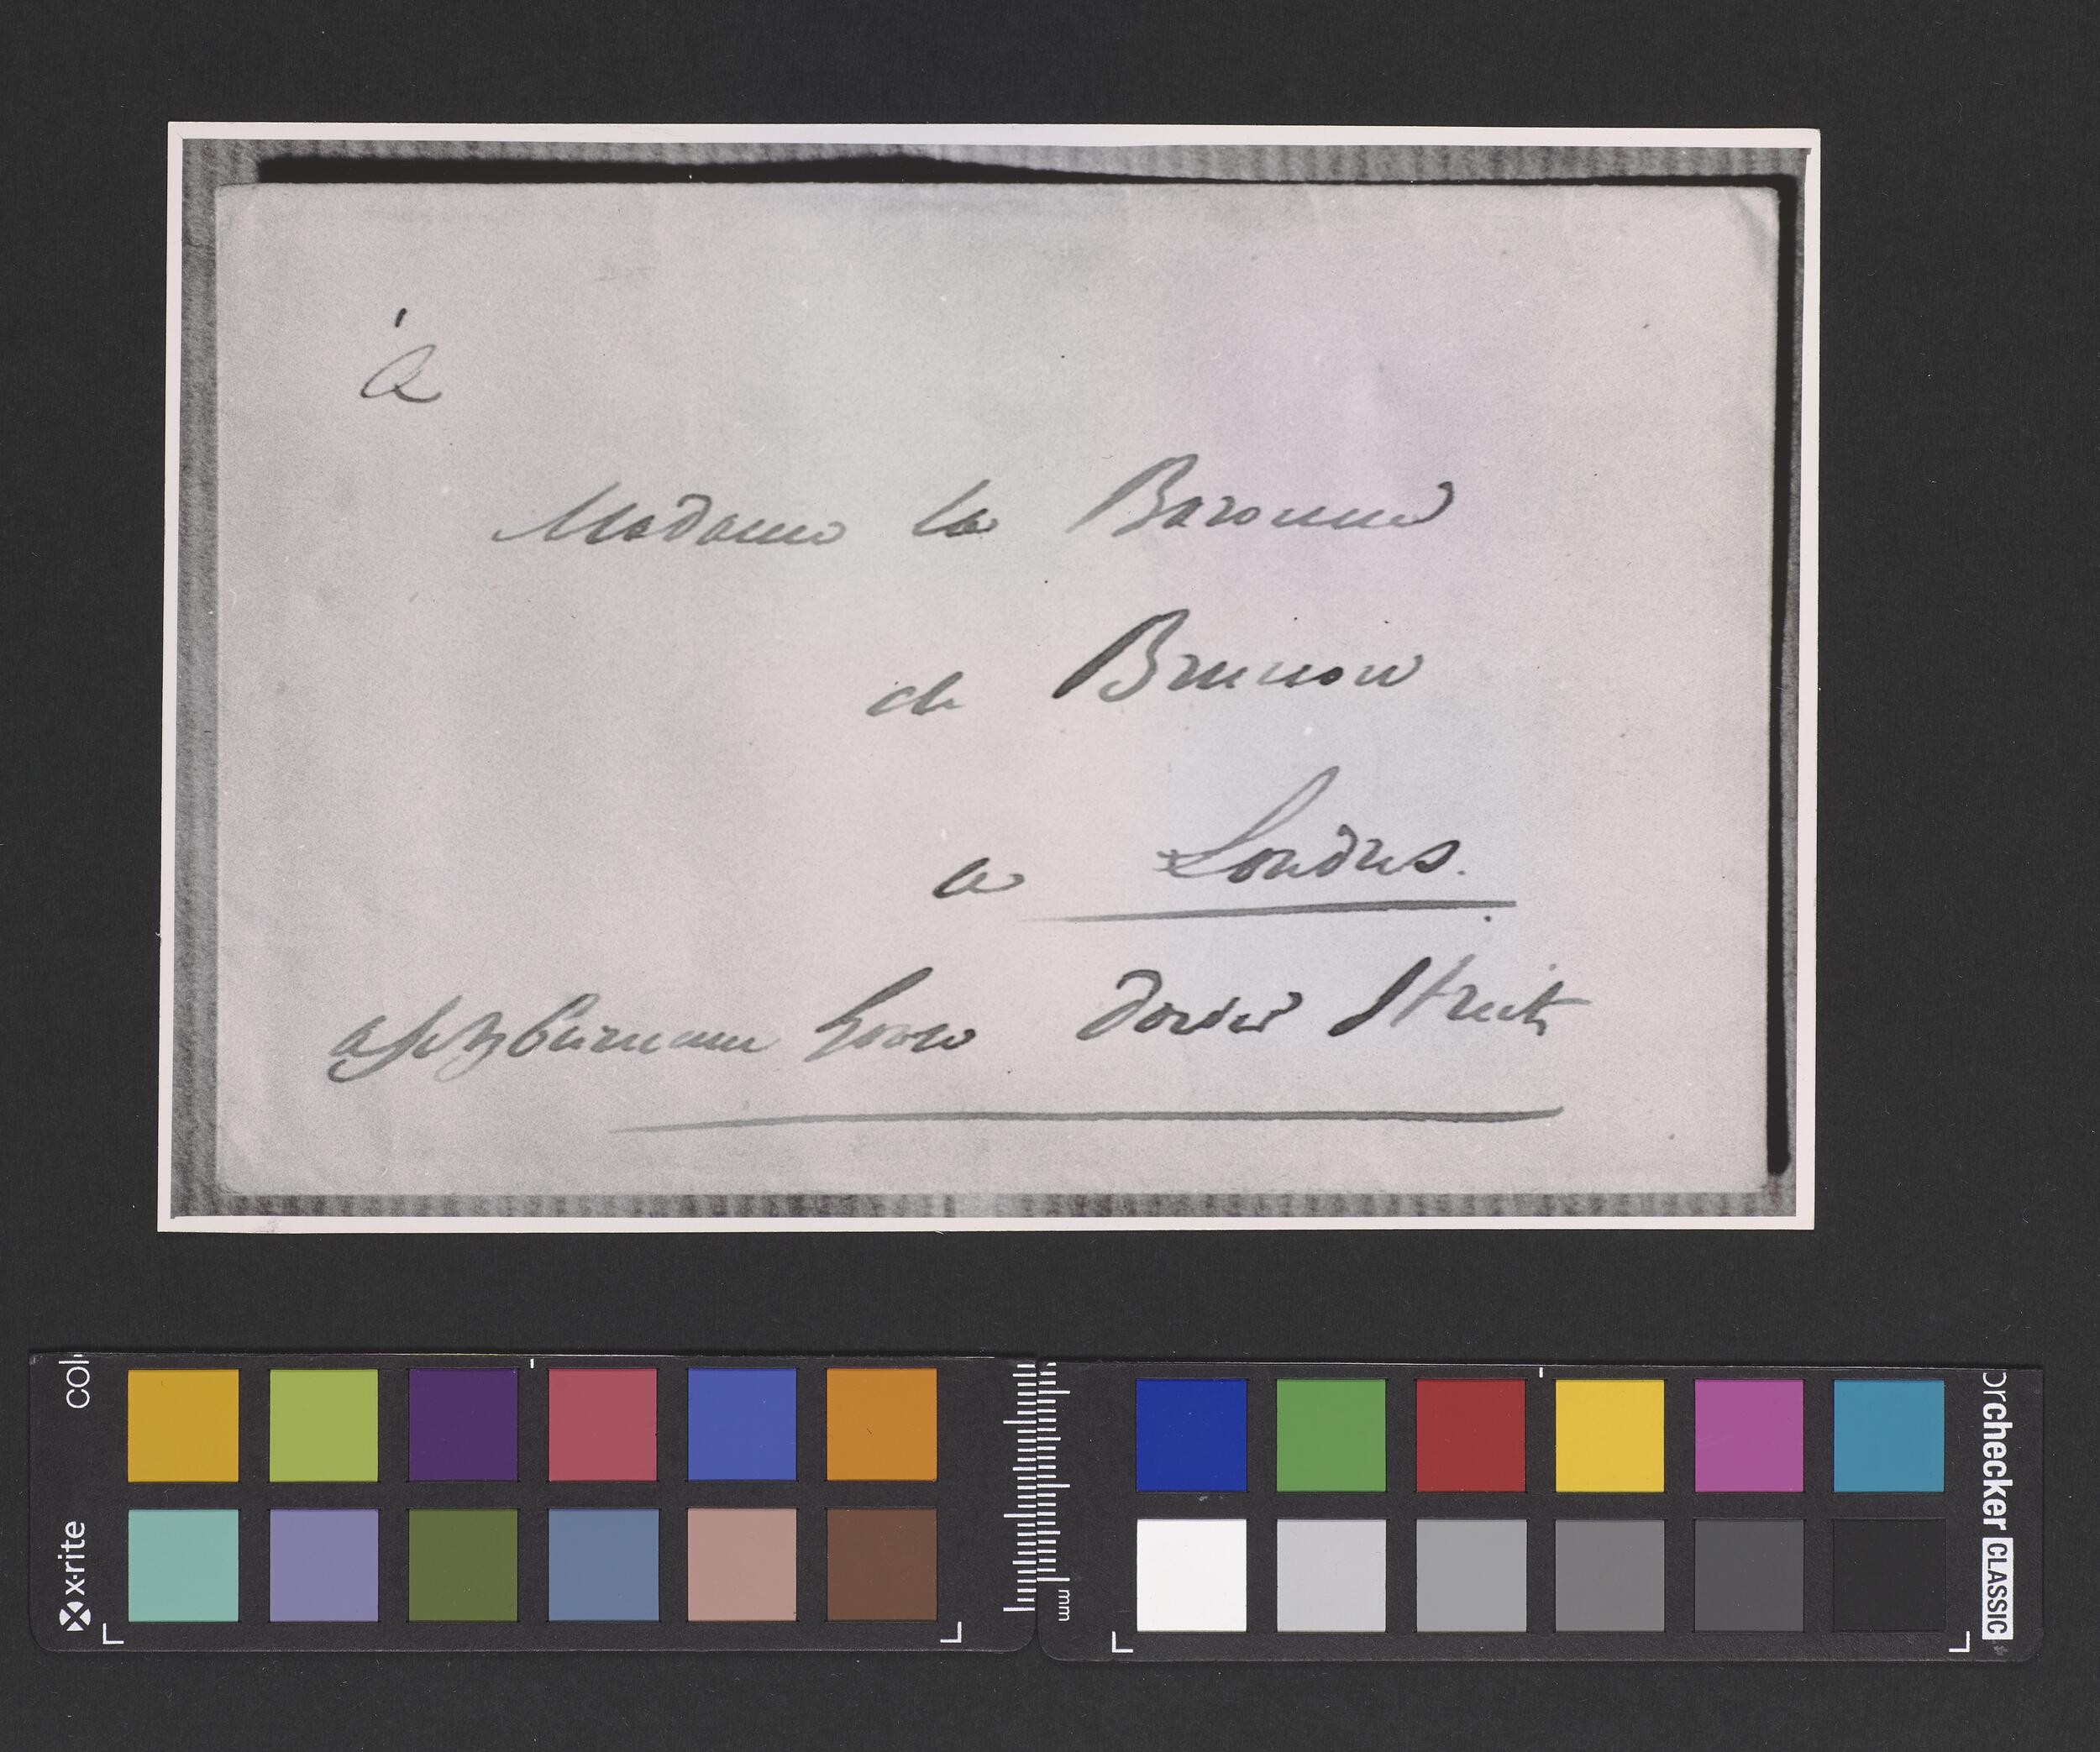 à
Madame la Baronne
de Brunow
a Londres.
ashburnham house dover Street
col
x·rite
mm
orchecker CLASSIC